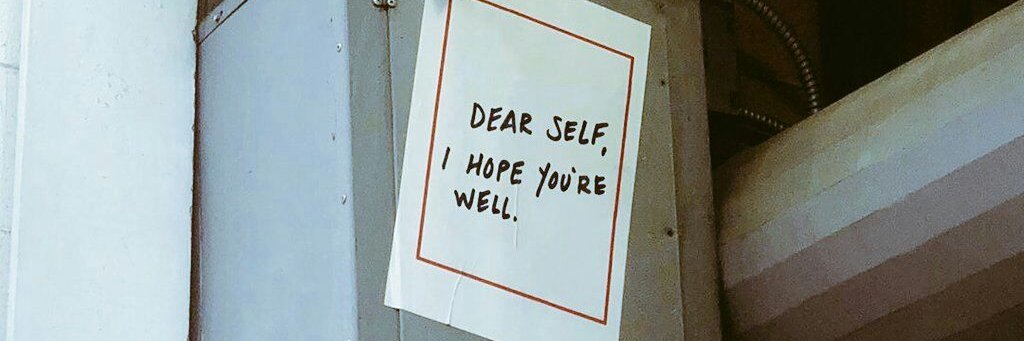 DEAR SELF,
I HOPE YOU'RE
WELL.